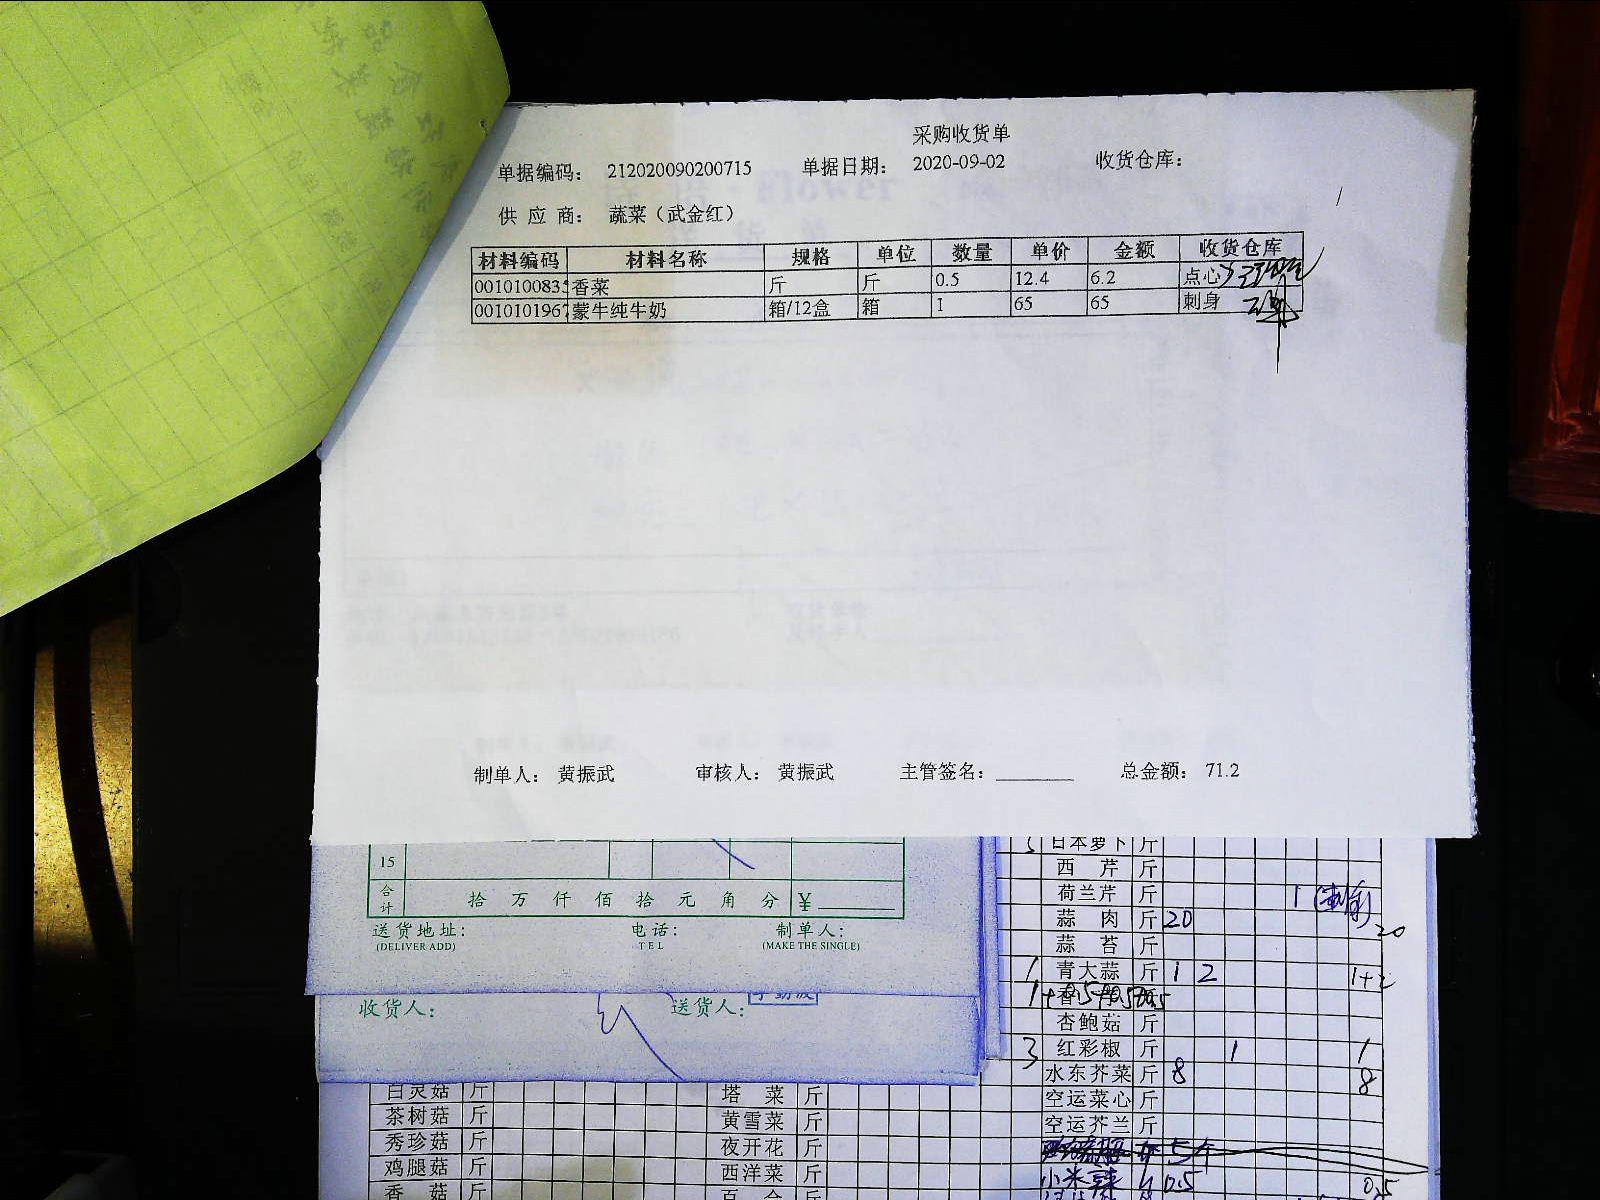 采购收货单
单据编码： 212020090200715 单据日期： 2020-09-02 收货仓库：
供 应 商： 蔬菜（武金红）
材料编码 材料名称 规格 单位 数量 单价 金额 收货仓库
0010100835 香菜 斤 斤 0.5 12.4 6.2 点心
0010101967 蒙牛纯牛奶 箱/12盒 箱 1 65 65 刺身
制单人： 黄振武 审核人： 黄振武 主管签名：________ 总金额： 71.2
15
合计 拾 万 仟 佰 拾 元 角 分 ¥________
送货地址： 电话： 制单人：
(DELIVER ADD) TEL (MAKE THE SINGLE)
收货人： 送货人：
日本萝卜 斤
西 芹 斤
荷兰芹 斤 1
蒜 肉 斤 20 20
蒜 苔 斤
1 青大蒜 斤 1 2 1+2
杏鲍菇 斤
3 红彩椒 斤 1 1
水东芥菜 斤 8 8
空运菜心 斤
空运芥兰 斤
小米辣 0.5 0.5
白灵菇 斤 塔 菜 斤
茶树菇 斤 黄雪菜 斤
秀珍菇 斤 夜开花 斤
鸡腿菇 斤 西洋菜 斤
香 菇 斤 百 合 斤